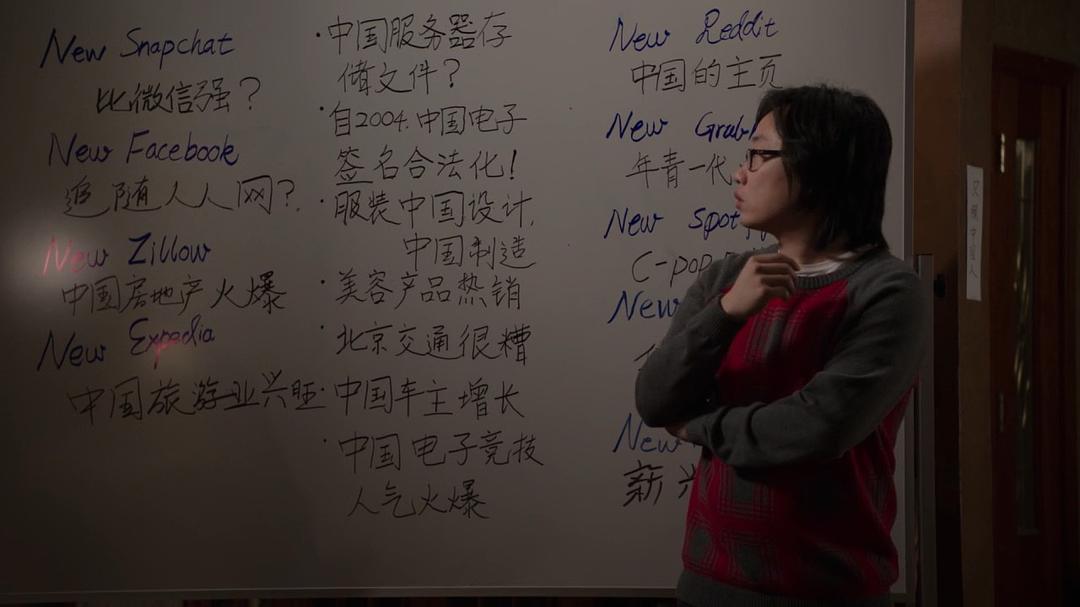 New Snapchat
比微信强?
New Facebook
追随人人网?
New Zillow
中国房地产火爆
New Expedia
中国旅游业兴旺
·中国服务器存
储文件?
·自2004.中国电子
签名合法化!
·服装中国设计,
中国制造
·美容产品热销
北京交通很糟
·中国车主增长
·中国电子竞技
人气火爆
New Reddit
中国的主页
New
年青一代
New
C-pop
New
New
新